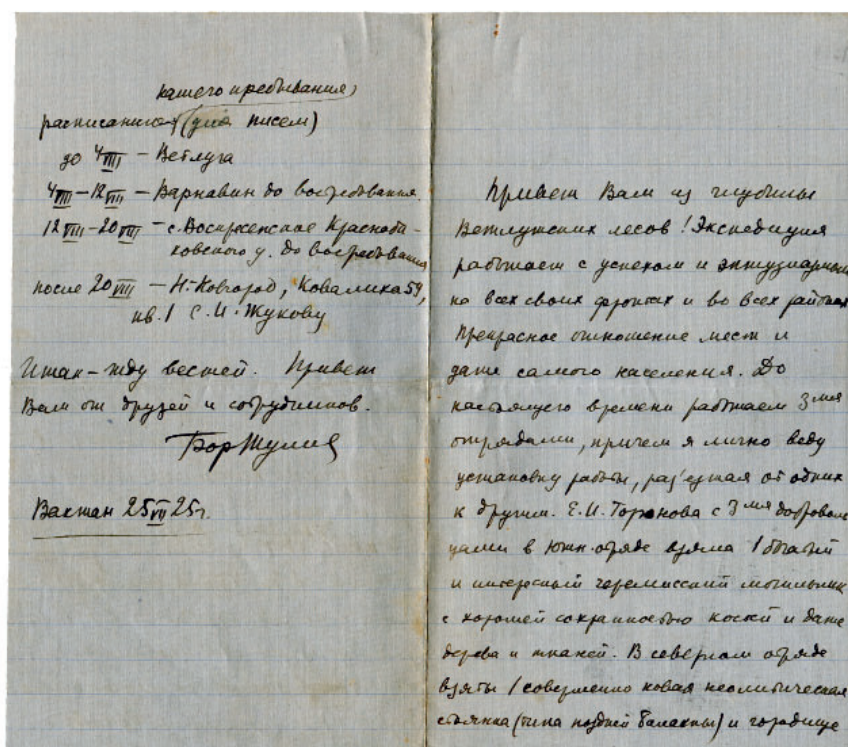 нашего пребывания
расписание (для писем)
до 4 VIII – Ветлуга
4 VIII – 12 VIII – Варнавин до востребования
12 VIII – 20 VIII – с. Воскресенское Краснoба-
ковского у. до востребования
после 20 VIII – Н-Новгород, Ковалиха 59,
кв. 1 С.И. Жукову
Итак – жду вестей. Привет
Вам от друзей и сотрудников.
Бор Жуков
Вахтан 25 VII 25 г.
Привет Вам из глубины
Ветлужских лесов! Экспедиция
работает с успехом и энтузиазмом
на всех своих фронтах и во всех районах
Прекрасное отношение мест и
даже самого населения. До
настоящего времени работаем 3мя
отрядами, причем я лично веду
установку работы, раз'езжая от одних
к другим. Е.И. Горюнова с 3мя доброволь
цами в южн. отряде взяла 1 богатый
и интересный черемисский могильник
с хорошей сохранностью костей и даже
дерева и тканей. В северном отряде
взяты 1 совершенно новая неолитическая
стоянка (типа поздней Балахны) и городище